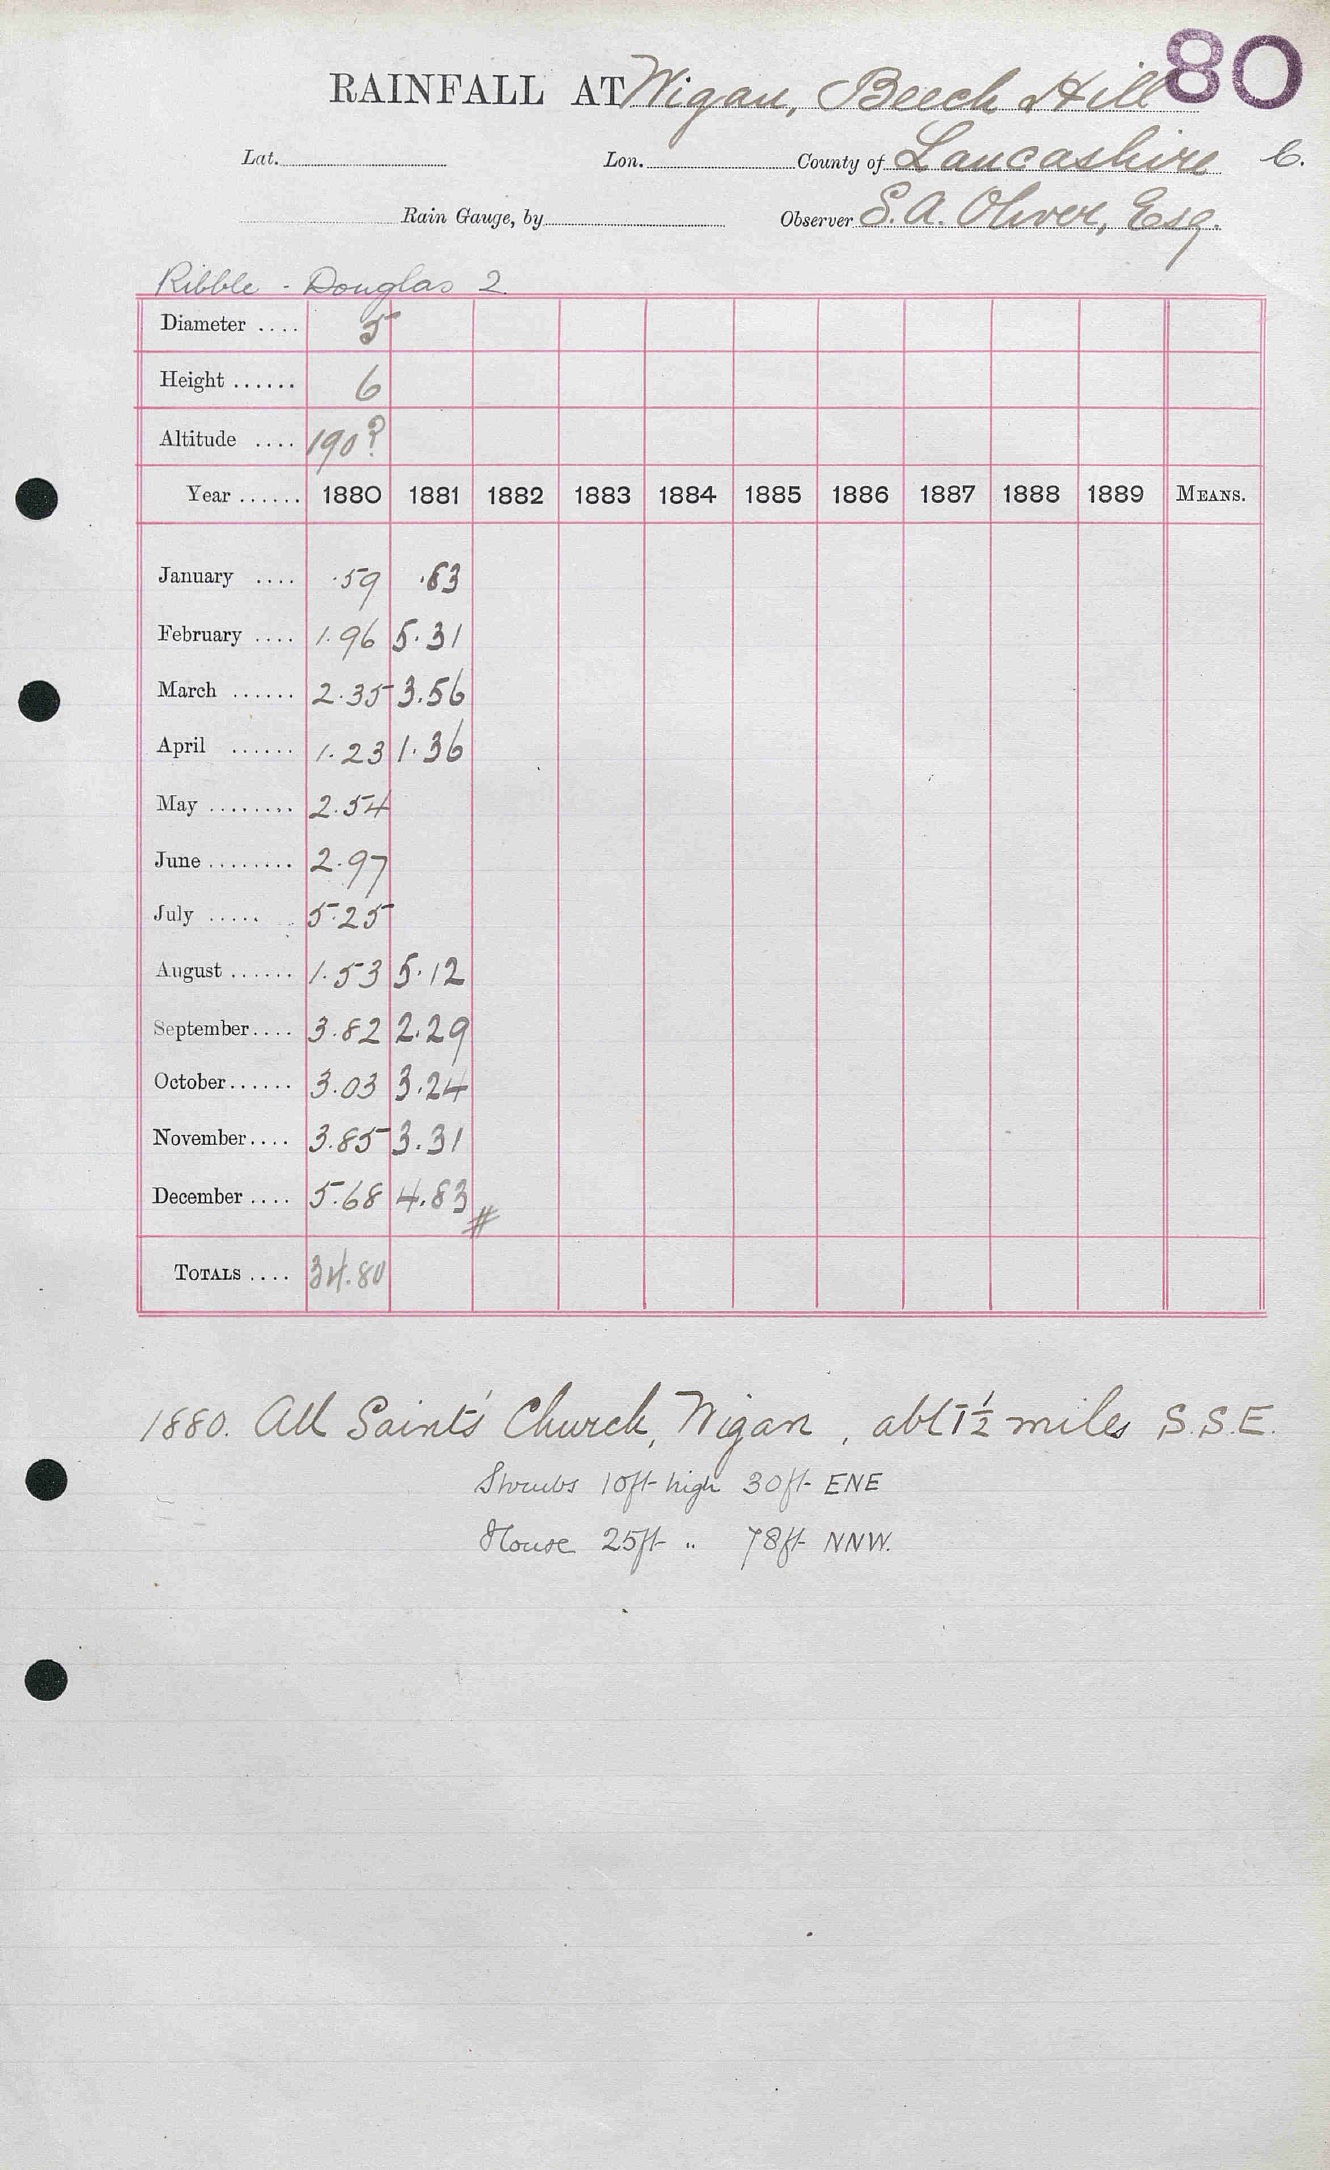 80
RAINFALL AT Wigan, Beech Hill
Lat. Lon. County of Lancashire 6.
Rain Gauge, by Observer S. A. Oliver, Esq.
Ribble - Douglas 2
Diameter .... 5
Height ...... 6
Altitude .... 190?
Year ...... 1880 1881 1882 1883 1884 1885 1886 1887 1888 1889 MEANS.
January .... .59 .63
February .... 1.96 5.31
March ...... 2.35 3.56
April ...... 1.23 1.36
May ........ 2.54
June ........ 2.97
July ..... 5.25
August ...... 1.53 5.12
September.... 3.82 2.29
October...... 3.03 3.24
November.... 3.85 3.31
December .... 5.68 4.83 #
TOTALS .... 34.80
1880. All Saints' Church, Wigan, abt 1½ miles S.S.E.
Shrubs 10ft high 30ft ENE
House 25ft " 78ft NNW.